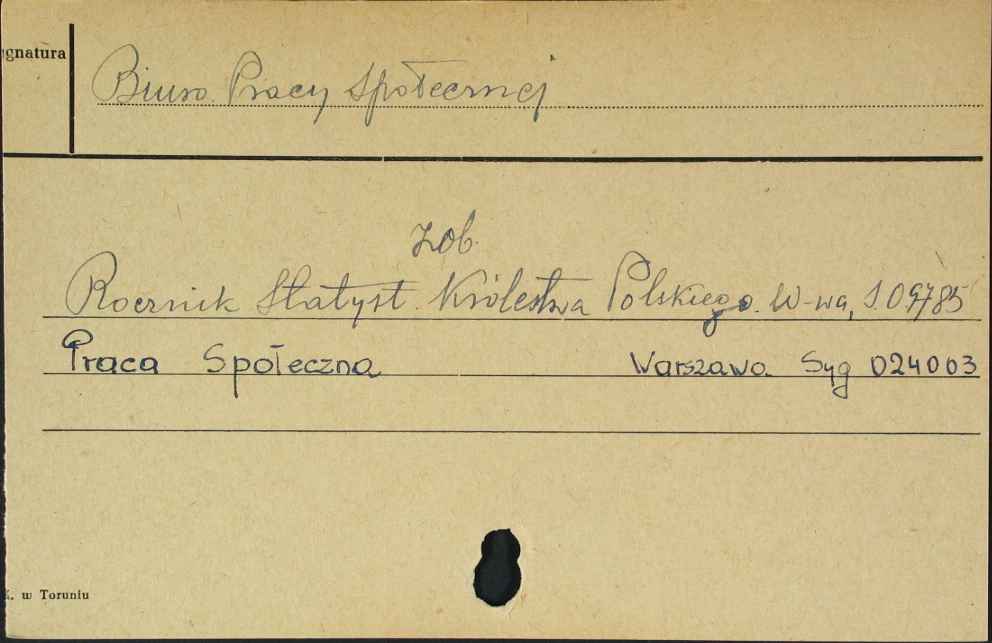 ygnatura
Biuro Pracy Społecznej
zob.
Rocznik Statyst. Królestwa Polskiego. W-wa, S.09785
Praca Społeczna Warszawa Syg 024003
K. w Toruniu